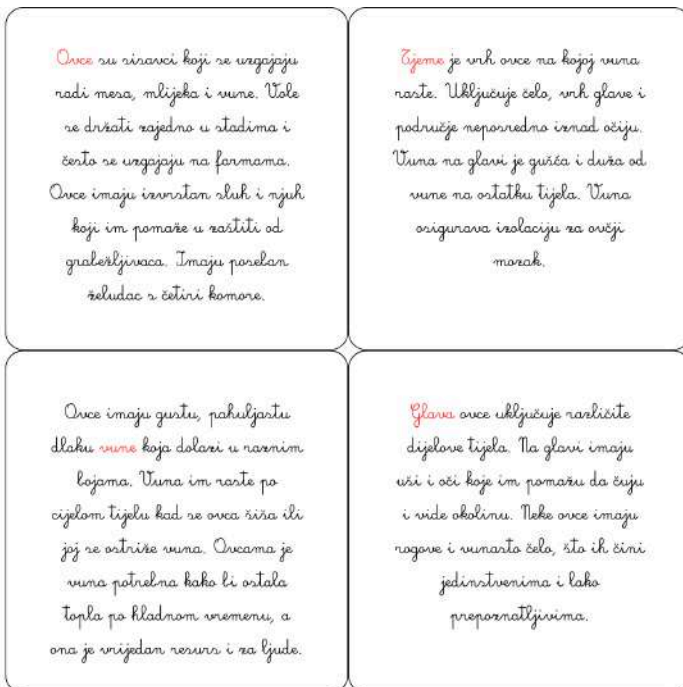 Ovce su sisavci koji se uzgajaju
radi mesa, mlijeka i vune. Vole
se držati zajedno u stadima i
često se uzgajaju na farmama.
Ovce imaju izvrstan sluh i njuh
koji im pomaže u zaštiti od
grabežljivaca. Imaju poseban
želudac s četiri komore.
Tjeme je vrh ovce na kojoj vuna
raste. Uključuje čelo, vrh glave i
područje neposredno iznad očiju.
Vuna na glavi je gušća i duža od
vune na ostatku tijela. Vuna
osigurava izolaciju za ovčji
mozak.
Ovce imaju gustu, pahuljastu
dlaku vune koja dolazi u raznim
bojama. Vuna im raste po
cijelom tijelu kad se ovca šiša ili
joj se ostriže vuna. Ovcama je
vuna potrebna kako bi ostala
topla po hladnom vremenu, a
ona je vrijedan resurs i za ljude.
Glava ovce uključuje različite
dijelove tijela. Na glavi imaju
uši i oči koje im pomažu da čuju
i vide okolinu. Neke ovce imaju
rogove i vunasto čelo, što ih čini
jedinstvenima i lako
prepoznatljivima.